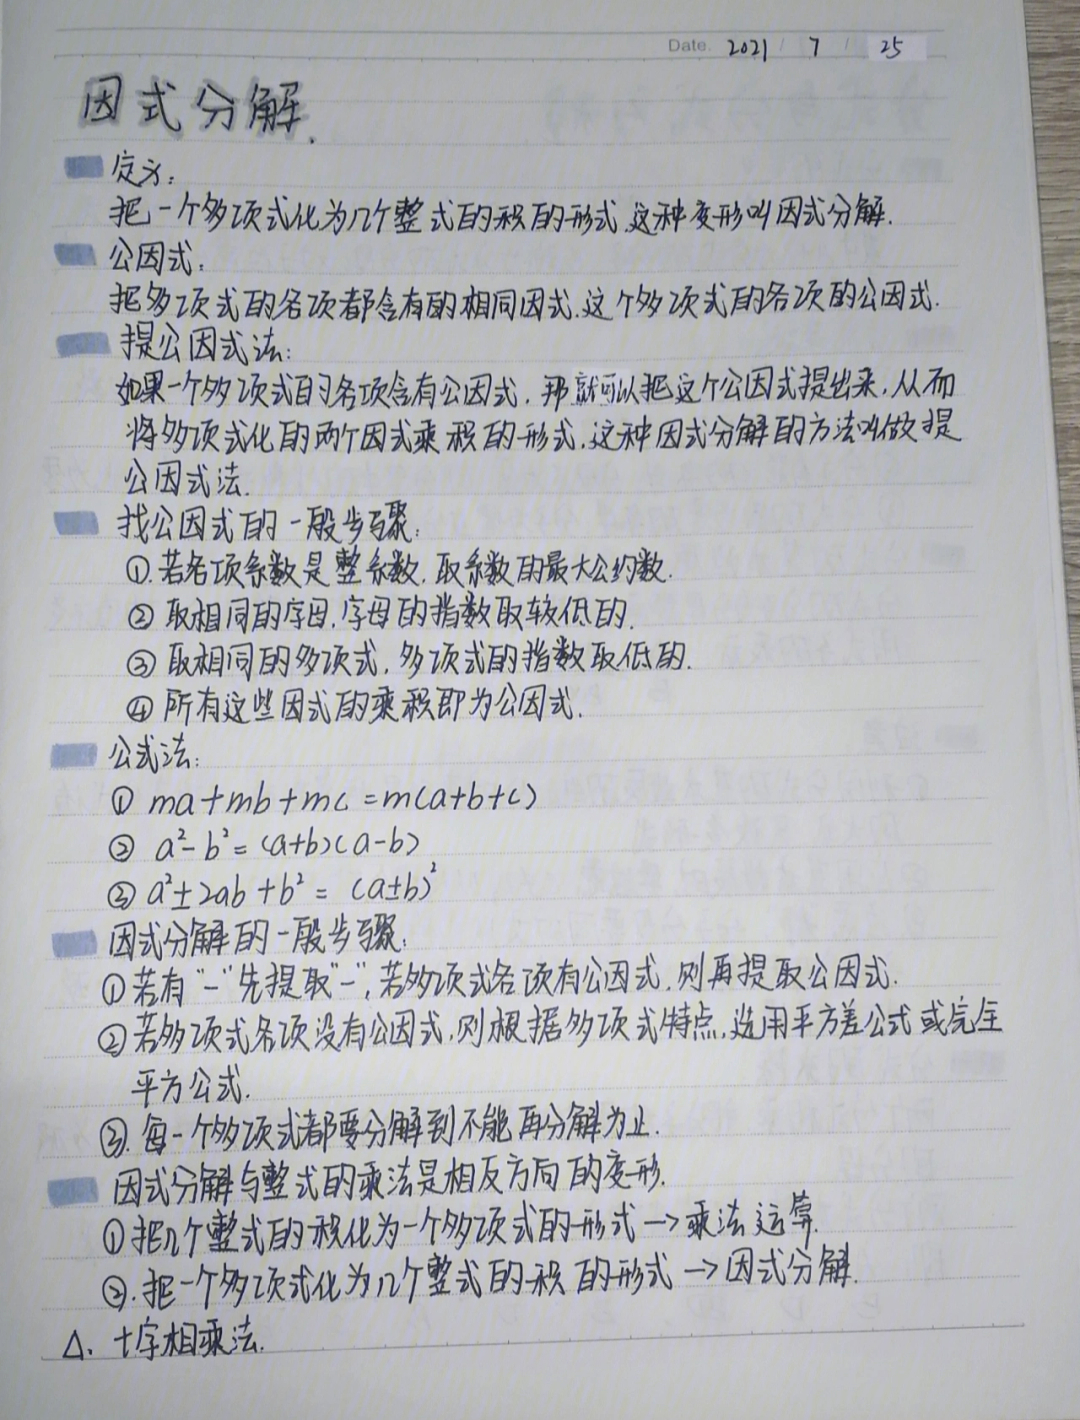 Date. 2021 / 7 / 25
因式分解.
定义:
把一个多项式化为几个整式的积的形式,这种变形叫因式分解.
公因式:
把多项式的各项都含有的相同因式.这个多项式的各项的公因式.
提公因式法:
如果一个多项式的各项含有公因式,那就可以把这个公因式提出来,从而
将多项式化的两个因式乘积的形式,这种因式分解的方法叫做提
公因式法.
找公因式的一般步骤:
①.若各项系数是整系数,取系数的最大公约数.
② 取相同的字母,字母的指数取较低的.
③ 取相同的多项式,多项式的指数取低的.
④ 所有这些因式的乘积即为公因式.
公式法:
① ma+mb+mc=m(a+b+c)
② a²-b²=(a+b)(a-b)
③ a²±2ab+b²=(a±b)²
因式分解的一般步骤:
①若有"-"先提取"-",若多项式各项有公因式,则再提取公因式.
②若多项式各项没有公因式,则根据多项式特点,选用平方差公式或完全
平方公式.
③.每一个多项式都要分解到不能再分解为止.
因式分解与整式的乘法是相反方向的变形.
①把几个整式的积化为一个多项式的形式→乘法运算.
②.把一个多项式化为几个整式的积的形式→因式分解.
△. 十字相乘法.